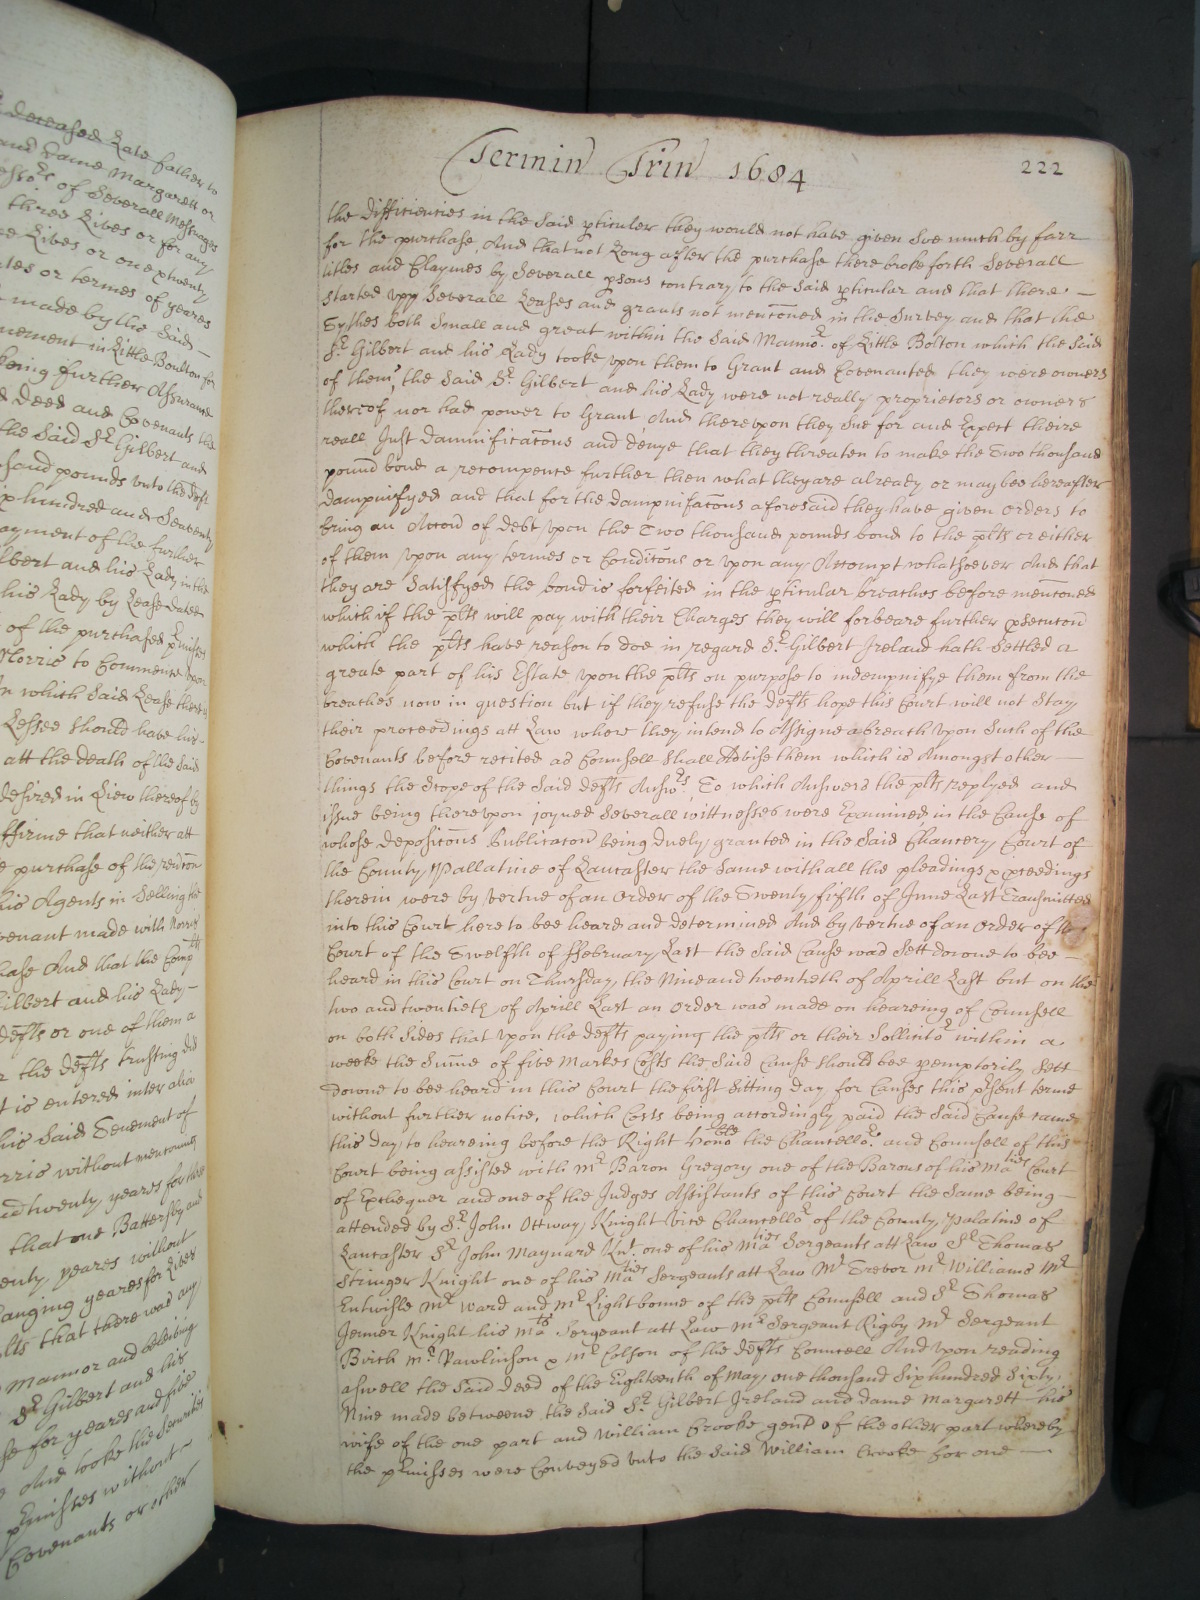 deceased Late father to
and Dame Margarett or
of Severall Messuages
three Lives or for any
Lives or one & twenty
or termes of yeares
made by the Said —
in Little Boulton for
being further Assurance
Deed and Covenants the
the Said Sr. Gilbert and
pounds unto the deft
hundred and Seaventy
payment of the further
and his Lady in the
his Lady by Lease dated
of the purchased pmisses
Norris to Commence upon
In which Said Lease there is
Lessee should have his
att the death of the Said
desired in view thereof by
affirme that neither att
purchase of the
his Agents in Selling the
Covenant made with Norris
And that the Comp
Gilbert and his Lady —
defts or one of them a
the defts trusting did
is entered inter alia
his Said Tenement of
Norris without mencioning
and twenty yeares for three
that one Battersby and
twenty yeares without
yeares for Lives
that there was any
Mannor and beleiving
Sr. Gilbert and his
for yeares and five
And tooke the Securities
pmisses without —
Covenants or other
Termin Trin 1684
222
the Difficiencies in the Said pticuler they would not have given Soe much by farr
for the purchase, And that not Long after the purchase there broke forth Severall
titles and Claymes by Severall psons contrary to the Said pticular and that there —
started upp Severall Leases and grants not menconed in the Survey and that the
Tythes both Small and great within the Said Manno.r of Little Bolton which the Said
Sr. Gilbert and his Lady tooke upon them to Grant and Covenanted they were owners
of them, the Said Sr. Gilbert and his Lady were not really proprietors or owners
thereof nor had power to Grant And thereupon they Sue for and Expect theire
reall Just damnificacons and denye that they threaten to make the Two thousand
pound bond a recompence further then what they are already or may bee hereafter
dampnifyed and that for the dampnifacons aforesaid they have given orders to
bring an Accon of debt upon the Two thousand pounds bond to the plts or either
of them upon any termes or Condicons or upon any Accompt whatsoever And that
they are Satisfyed the bond is forfeited in the pticular breaches before menconed
which if the plts will pay with their Charges they will forbeare further psecucon
which the plts have reason to doe in regard Sr. Gilbert Ireland hath Settled a
greate part of his Estate upon the plts on purpose to indempnifye them from the
breaches now in question but if they refuse the defts hope this Court will not Stay
their proceedings att Law where they intend to Assigne a breach upon Such of the
Covenants before recited as Counsell Shall Advise them which is Amongst other —
things the Scope of the Said defts Answ.rs To which Answers the plts replyed and
issue being thereupon joyned Severall wittnesses were Examined in the Cause of
whose deposicons Publicacon being duely granted in the Said Chancery Court of
the County Pallatine of Lancaster the Same with all the pleadings & pceedings
therein were by vertue of an Order of the Twenty fifth of June Last Transmitted
into this Court here to bee heard and determined And by vertue of an Order of the
Court of the Twelfth of ffebruary Last the Said Cause was Sett downe to bee —
heard in this Court on Thursday the Nine and twentieth of Aprill Last but on the
two and twentieth of Aprill Last an order was made on heareing of Counsell
on both Sides that upon the defts paying the plts or their Sollicito.r within a
weeke the Sume of five Markes Costs the Said Cause should bee pemptorily Sett
downe to bee heard in this Court the first Sitting day for Causes this psent terme
without further notice, which Costs being accordingly paid the Said Cause came
this day to heareing before the Right hono.ble the Chancello.r and Counsell of this
Court being assisted with Mr. Baron Gregory one of the Barons of his Ma.ties Court
of Exchequer and one of the Judges Assistants of this Court the Same being —
attended by Sr. John Ottway Knight Vice Chancello.r of the County Palatine of
Lancaster Sr. John Maynard Knt. one of his Ma.ties Sergeants att Law Sr. Thomas
Stringer Knight one of his Ma.ties Sergeants att Law Mr. Trevor Mr. Williams Mr.
Entwisle Mr. Ward and Mr. Lightbonne of the plts Counsell and Sr. Thomas
Jenner Knight his Ma.ts Sergeant att Law Mr. Sergeant Rigby Mr. Sergeant
Birch Mr. Rawlinson & Mr. Colson of the defts Councell And upon reading
aswell the Said deed of the Eighteenth of May one thousand Six hundred Sixty
Nine made betweene the Said Sr. Gilbert Ireland and Dame Margarett his
wife of the one part and William Crooke gent of the other part whereby
the pmisses were Conveyed unto the Said William Crooke for one —